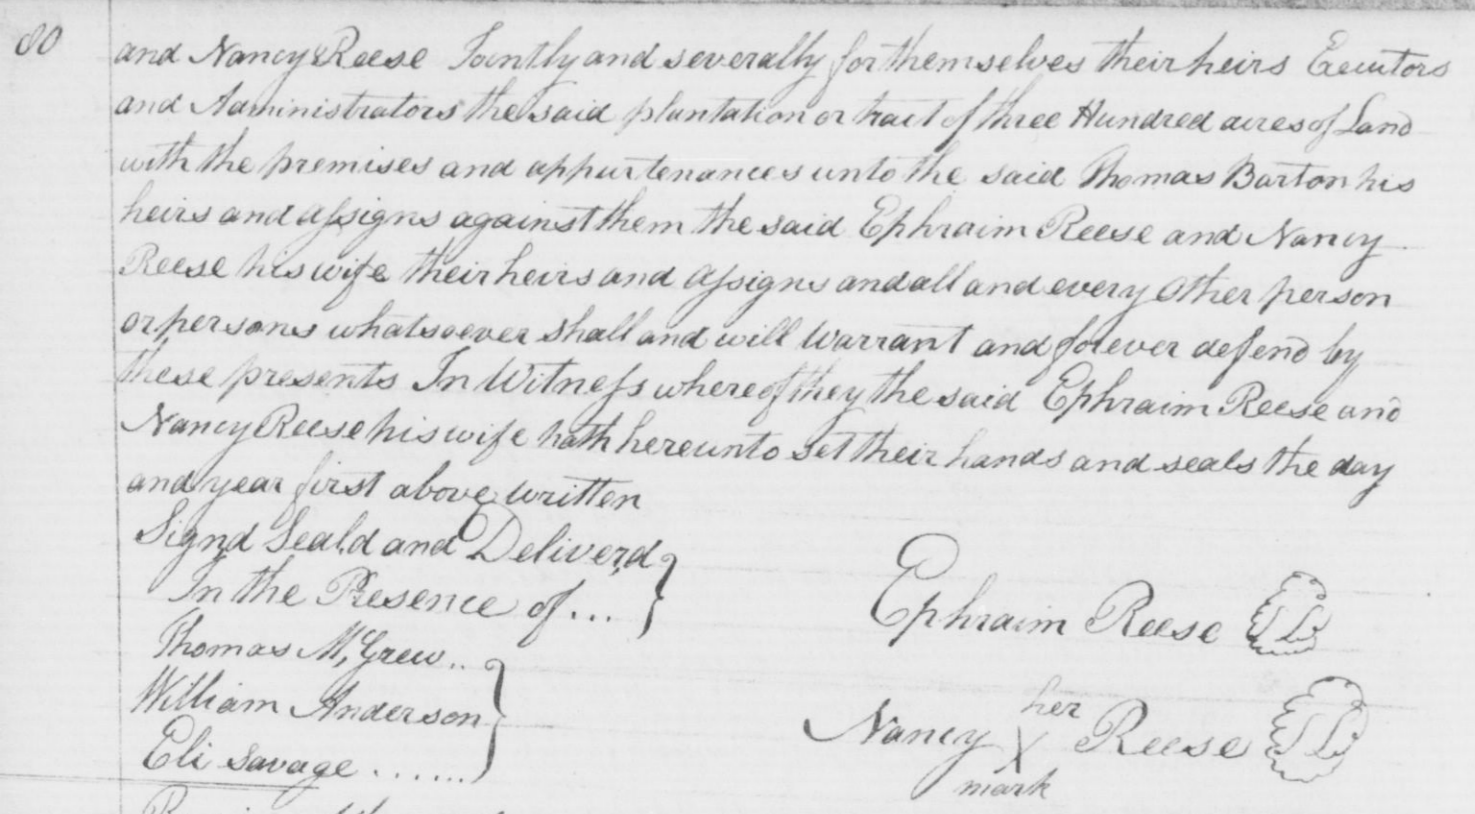 80
and Nancy Reese Jointly and severally for themselves their heirs Executors
and Administrators the said plantation or tract of three Hundred acres of Land
with the premises and appurtenances unto the said Thomas Barton his
heirs and assigns against them the said Ephraim Reese and Nancy
Reese his wife their heirs and assigns and all and every other person
or persons whatsoever shall and will warrant and forever defend by
these presents In Witness whereof they the said Ephraim Reese and
Nancy Reese his wife hath hereunto set their hands and seals the day
and year first above written
Signd Seal,d and Deliver,d
In the Presence of ...
Thomas M,Grew..
William Anderson
Eli Savage .......
Ephraim Reese LS
her
Nancy X Reese LS
mark